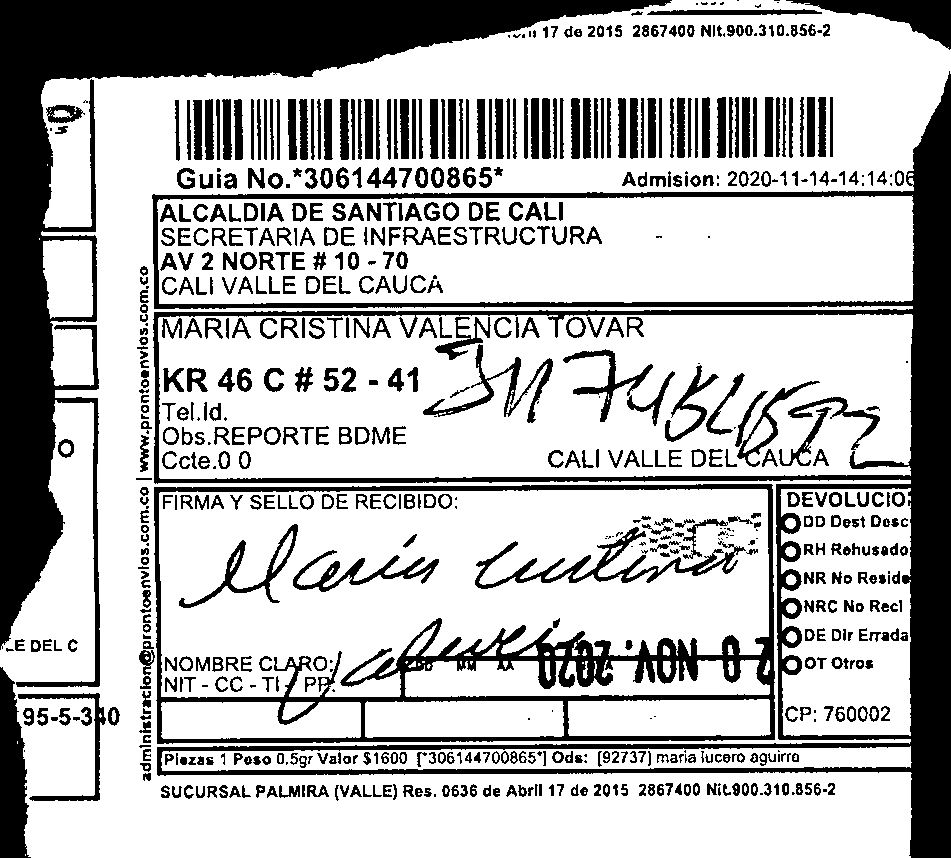 17 de 2015 2867400 Nit.900.310.856-2
Guia No.*306144700865*
Admision: 2020-11-14-14:14:06
ALCALDIA DE SANTIAGO DE CALI
SECRETARIA DE INFRAESTRUCTURA
AV 2 NORTE # 10 - 70
CALI VALLE DEL CAUCA
MARIA CRISTINA VALENCIA TOVAR
KR 46 C # 52 - 41
Tel.Id.
Obs.REPORTE BDME
Ccte.0 0
CALI VALLE DEL CAUCA
FIRMA Y SELLO DE RECIBIDO:
Maria Cristina
Valencia
20 NOV. 2020
NOMBRE CLARO:
NIT - CC - TI / PP:
DD MM AA
DEVOLUCIO
DD Dest Desc
RH Rehusado
NR No Reside
NRC No Recl
DE Dir Errada
OT Otros
CP: 760002
Piezas 1 Peso 0.5gr Valor $1600 [*306144700865*] Ods: [92737] maria lucero aguirre
SUCURSAL PALMIRA (VALLE) Res. 0636 de Abril 17 de 2015 2867400 Nit.900.310.856-2
administracion@prontoenvios.com.co | www.prontoenvios.com.co
O
LE DEL C
95-5-340